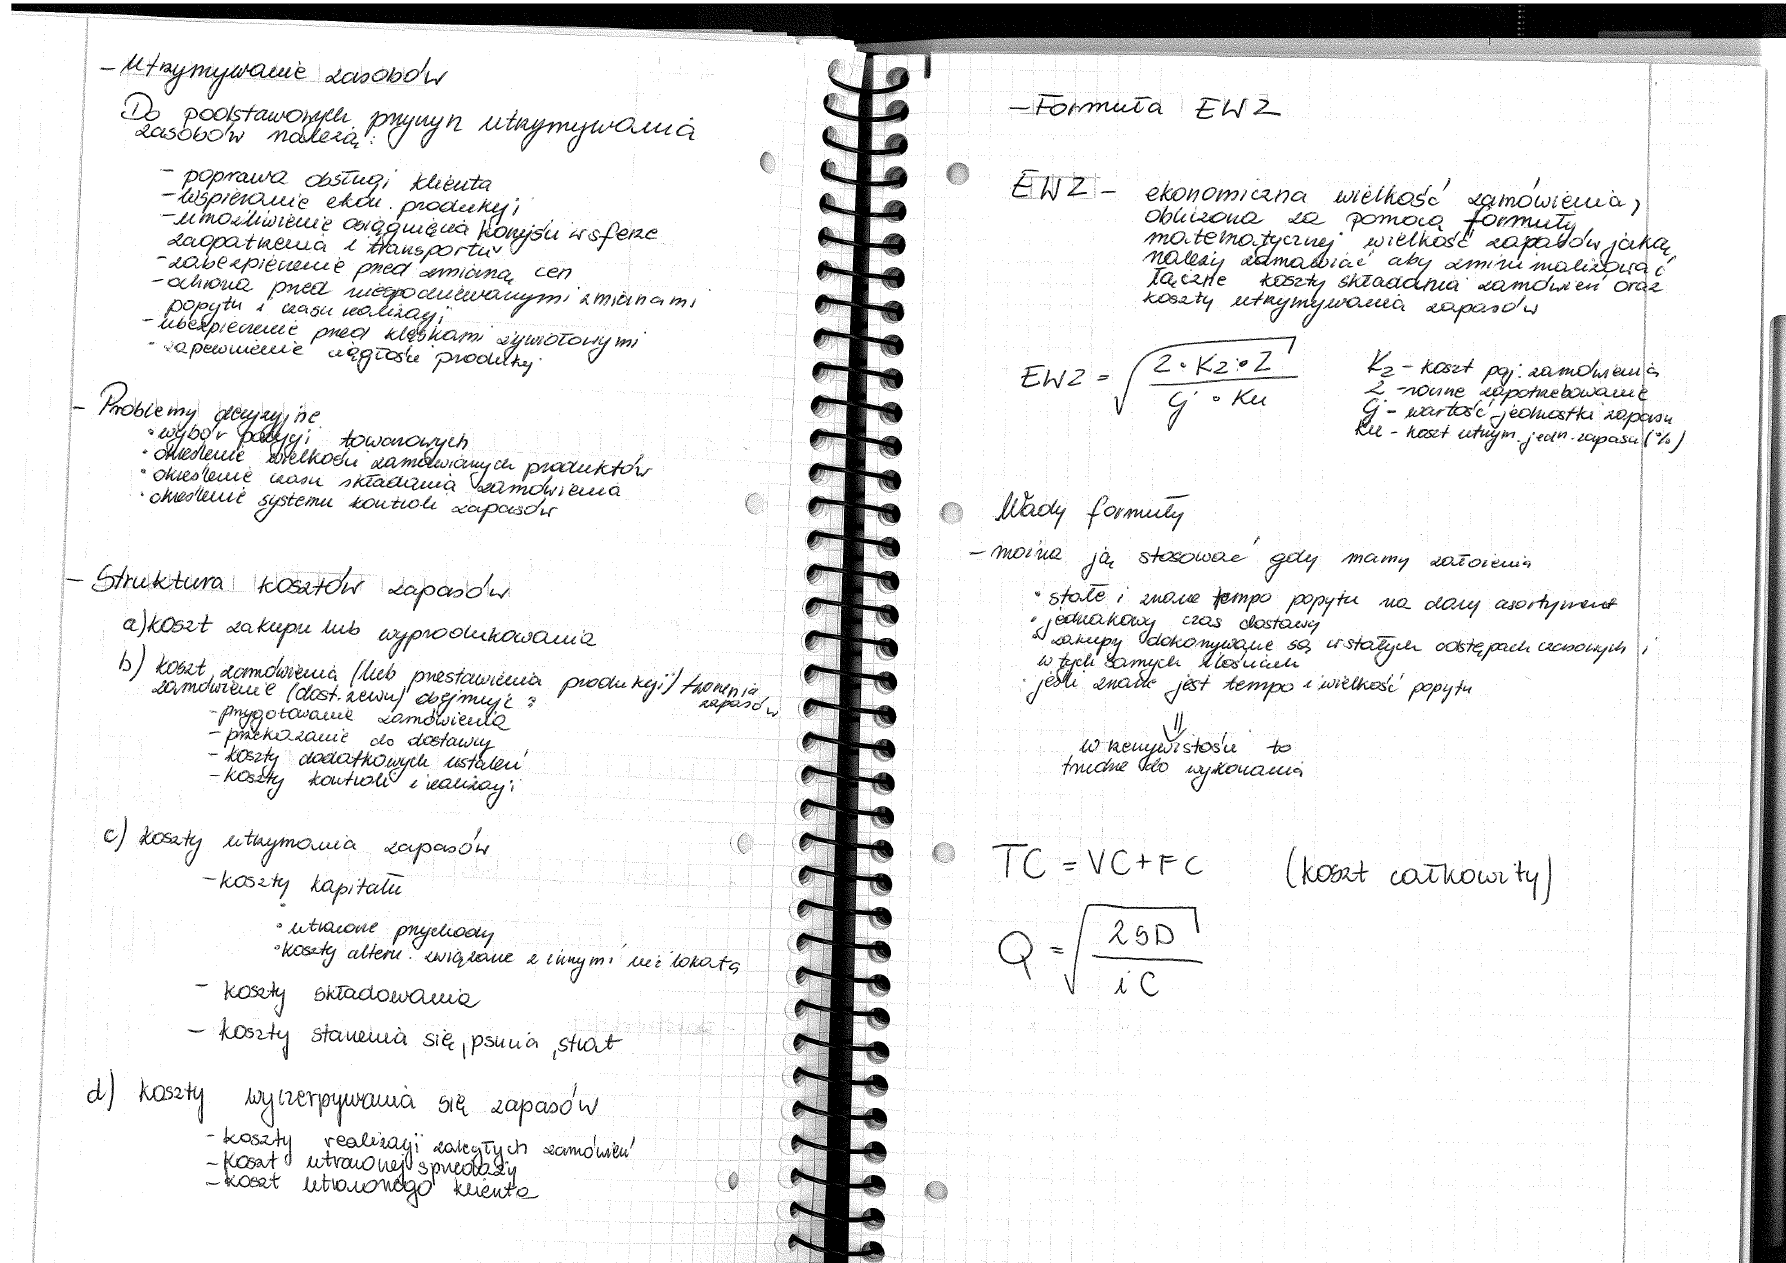 – Utrzymywanie zasobów
Do podstawowych przyczyn utrzymywania
zasobów należą:
– poprawa obsługi klienta
– wspieranie ekon. produkcji
– umożliwienie osiągnięcia korzyści w sferze
zaopatrzenia i transportu
– zabezpieczenie przed zmianą cen
– ochrona przed niespodziewanymi zmianami
popytu i czasu realizacji
– ubezpieczenie przed klęskami żywiołowymi
- zapewnienie ciągłości produkcji
– Problemy decyzyjne
• wybór pozycji towarowych
• określenie wielkości zamawianych produktów
• określenie czasu składania zamówienia
• określenie systemu kontroli zapasów
– Struktura kosztów zapasów
a) koszt zakupu lub wyprodukowania
b) koszt zamówienia (lub przestawienia produkcji) tworzenia zapasów
zamówienie (dost. zewn) obejmuje:
– przygotowanie zamówienia
– przekazanie do dostawcy
– koszty dodatkowych ustaleń
– koszty kontroli i realizacji
c) koszty utrzymania zapasów
– koszty kapitału
• utracone przychody
• koszty altern. związane z innymi niż lokatą
– koszty składowania
– koszty starzenia się, psucia, strat
d) koszty wyczerpywania się zapasów
– koszty realizacji zaległych zamówień
– koszt utraconej sprzedaży
– koszt utraconego klienta
– Formuła EWZ
EWZ – ekonomiczna wielkość zamówienia,
obliczona za pomocą formuły
matematycznej wielkość zapasów jaką
należy zamawiać aby zminimalizować
łączne koszty składania zamówień oraz
koszty utrzymywania zapasów
EWZ = √(2 · Kz · Z / Cj · Ku)
Kz – koszt poj. zamówienia
Z – roczne zapotrzebowanie
Cj – wartość jednostki zapasu
Ku – koszt utrzym. jedn. zapasu (%)
Wady formuły
– można ją stosować gdy mamy założenia
• stałe i znane tempo popytu na dany asortyment
• jednakowy czas dostawy
• zakupy dokonywane są w stałych odstępach czasowych i
w tych samych ilościach
• jeśli znane jest tempo i wielkość popytu
⇓
w rzeczywistości to
trudne do wykonania
TC = VC + FC (koszt całkowity)
Q = √(2SD / iC)